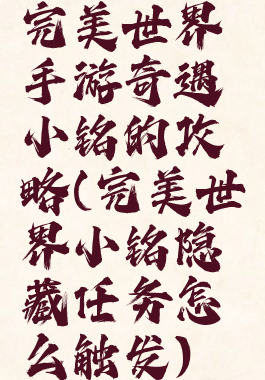 完美世界
手游奇遇
小铭的攻
略(完美世
界小铭隐
藏任务怎
么触发)